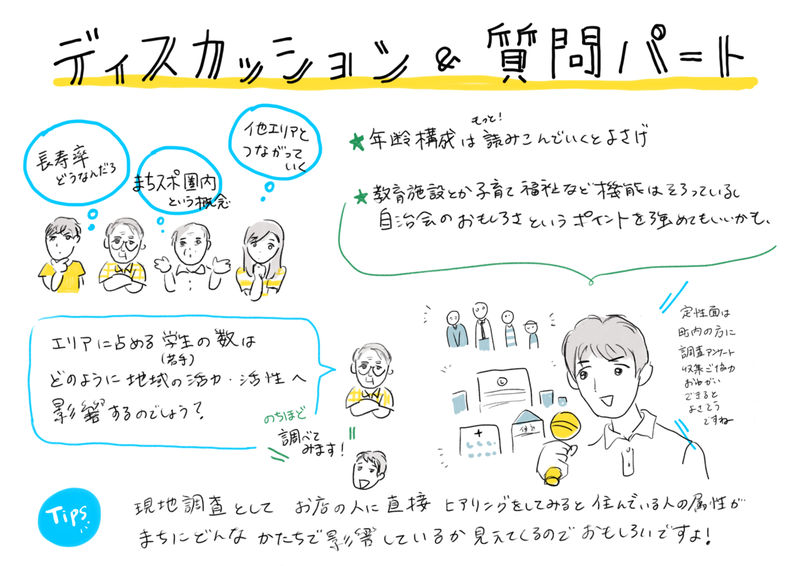 ディスカッション & 質問パート
長寿率
どうなんだろ
まちスポ圏内
という概念
他エリアと
つながって
いく
もっと!
★年齢構成は読みこんでいくとよさげ
★教育施設とか子育て福祉など機能はそろっているし
自治会のおもしろさというポイントを強めてもいいかも、
エリアに占める学生の数は
(若手)
どのように地域の活力・活性へ
影響するのでしょう?
のちほど
調べて
みます!
定性面は
町内の方に
調査アンケート
収集ご協力
おねがい
できると
よさそう
ですね
Tips
現地調査として お店の人に直接 ヒアリングをしてみると 住んでいる人の属性が
まちにどんな かたちで影響しているか 見えてくるので おもしろいですよ!